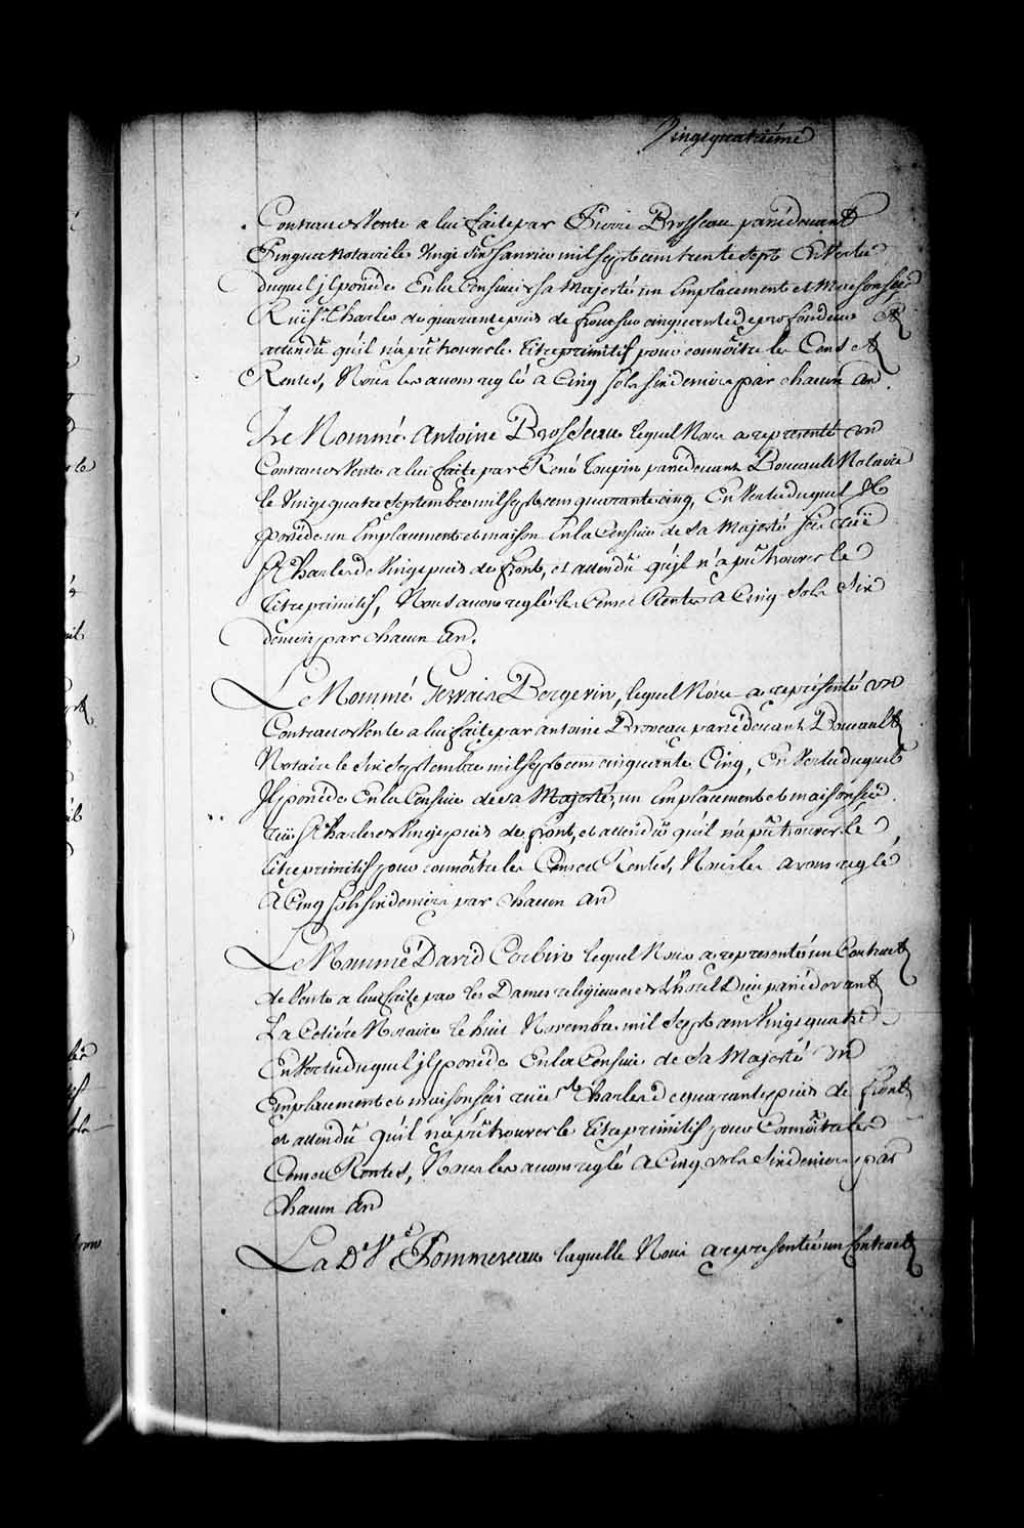 Vingt quatrieme
Contract de Vente a lui faite par Pierre Brosseau pardevant
Pinguet Notaire le Vingt Six Janvier mil sept cent trente sept En Vertu
duquel jl possède En la Censive de sa Majesté un Emplacement et Maison scis
Ruë St. Charles de quarante pieds de front sur cinquante de profondeur Et
attendu qu'il n'a pû trouver le titre primitif pour connoître les Cens et
Rentes, Nous les avons reglé a Cinq sols six deniers par chacun an.
Le Nommé Antoine Brosseau lequel Nous a representé un
Contract de Vente a lui faite par René Toupin pardevant Boucault Notaire
le Vingt quatre Septembre mil sept cent quarante cinq, En Vertu duquel Il
possède un Emplacement et maison En la Censive de Sa Majesté scis ruë
St Charles de Vingt pieds de front, et attendu qu'jl n'a pû trouver le
titre primitif, Nous avons reglé les Cens et Rentes a Cinq Sols Six
deniers par chacun an.
Le Nommé Gervais Bergevin, lequel Nous a représenté un
Contract de Vente a lui faite par antoine Brosseau pardevant Boucault
Notaire le Six Septembre mil sept cent cinquante Cinq, En Vertu duquel
Jl possède En la Censive de sa Majesté, un Emplacement et maison scis
ruë St Charles de Vingt pieds de front, et attendu qu'il n'a pû trouver le
titre primitif pour connoître les Cens et Rentes, Nous les avons reglé
a Cinq sols six deniers par chacun an
Le Nommé David Corbin lequel Nous a representé un Contract
de Vente a lui faite par les Dames religieuses de L'hotel Dieu pardevant
La Cetière Notaire le huit Novembre mil Sept cent Vingt quatre
En Vertu duquel jl possède En la Censive de Sa Majesté un
Emplacement et maison scis ruë St Charles de quarante pieds de front
et attendu qu'il n'a pû trouver le titre primitif pour Connoître les
Cens et Rentes, Nous les avons reglé a Cinq sols Six deniers par
chacun an
La De Ve Pommereau laquelle Nous a representé un Contract